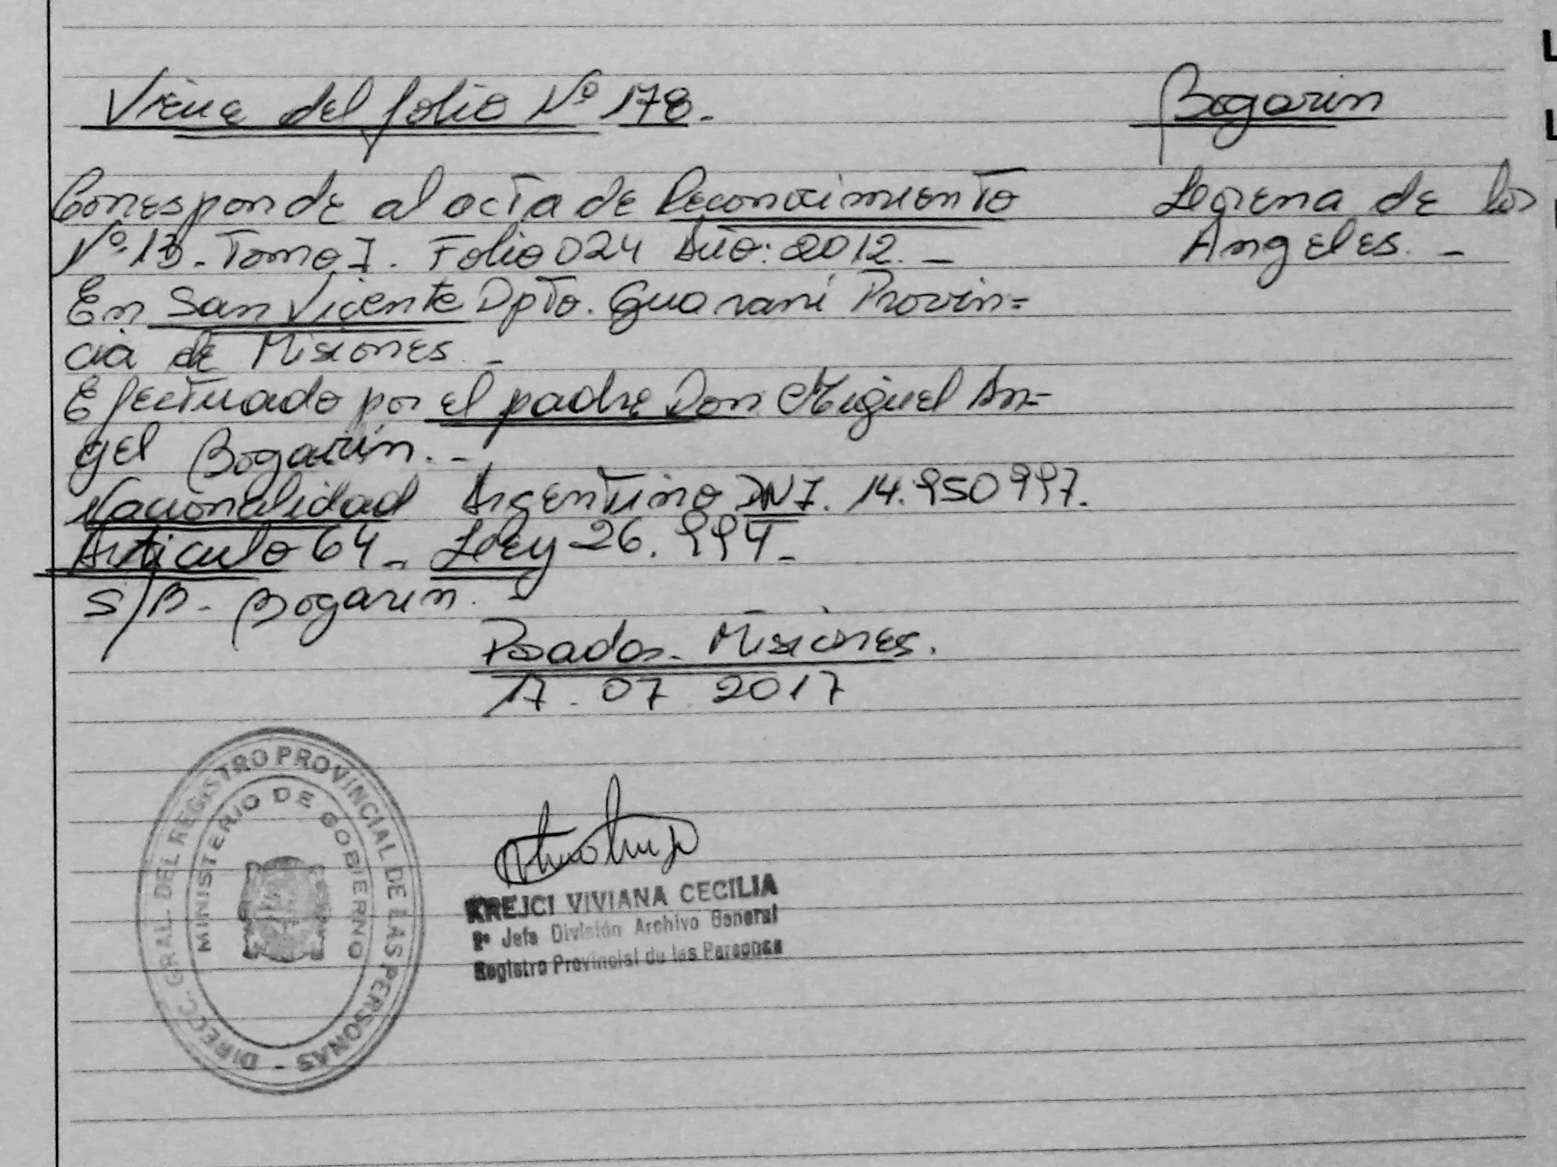 Viene del folio Nº 178.-
Bogarin
Corresponde al acta de Reconocimiento
Nº 13- Tomo I. Folio 024 Año: 2012.-
de los
Angeles.-
En San Vicente Dpto. Guarani Provin=
cia de Misiones.-
Efectuado por el padre Don Miguel An=
gel Bogarin.-
Nacionalidad Argentino DNI. 14.950997.
Articulo 64- Ley 26.994-
S/B- Bogarin.-
Posadas- Misiones.
17.07 2017
DIRECC. GRAL. DEL REGISTRO PROVINCIAL DE LAS PERSONAS -
MINISTERIO DE GOBIERNO
KREJCI VIVIANA CECILIA
2º Jefe División Archivo General
Registro Provincial de las Personas